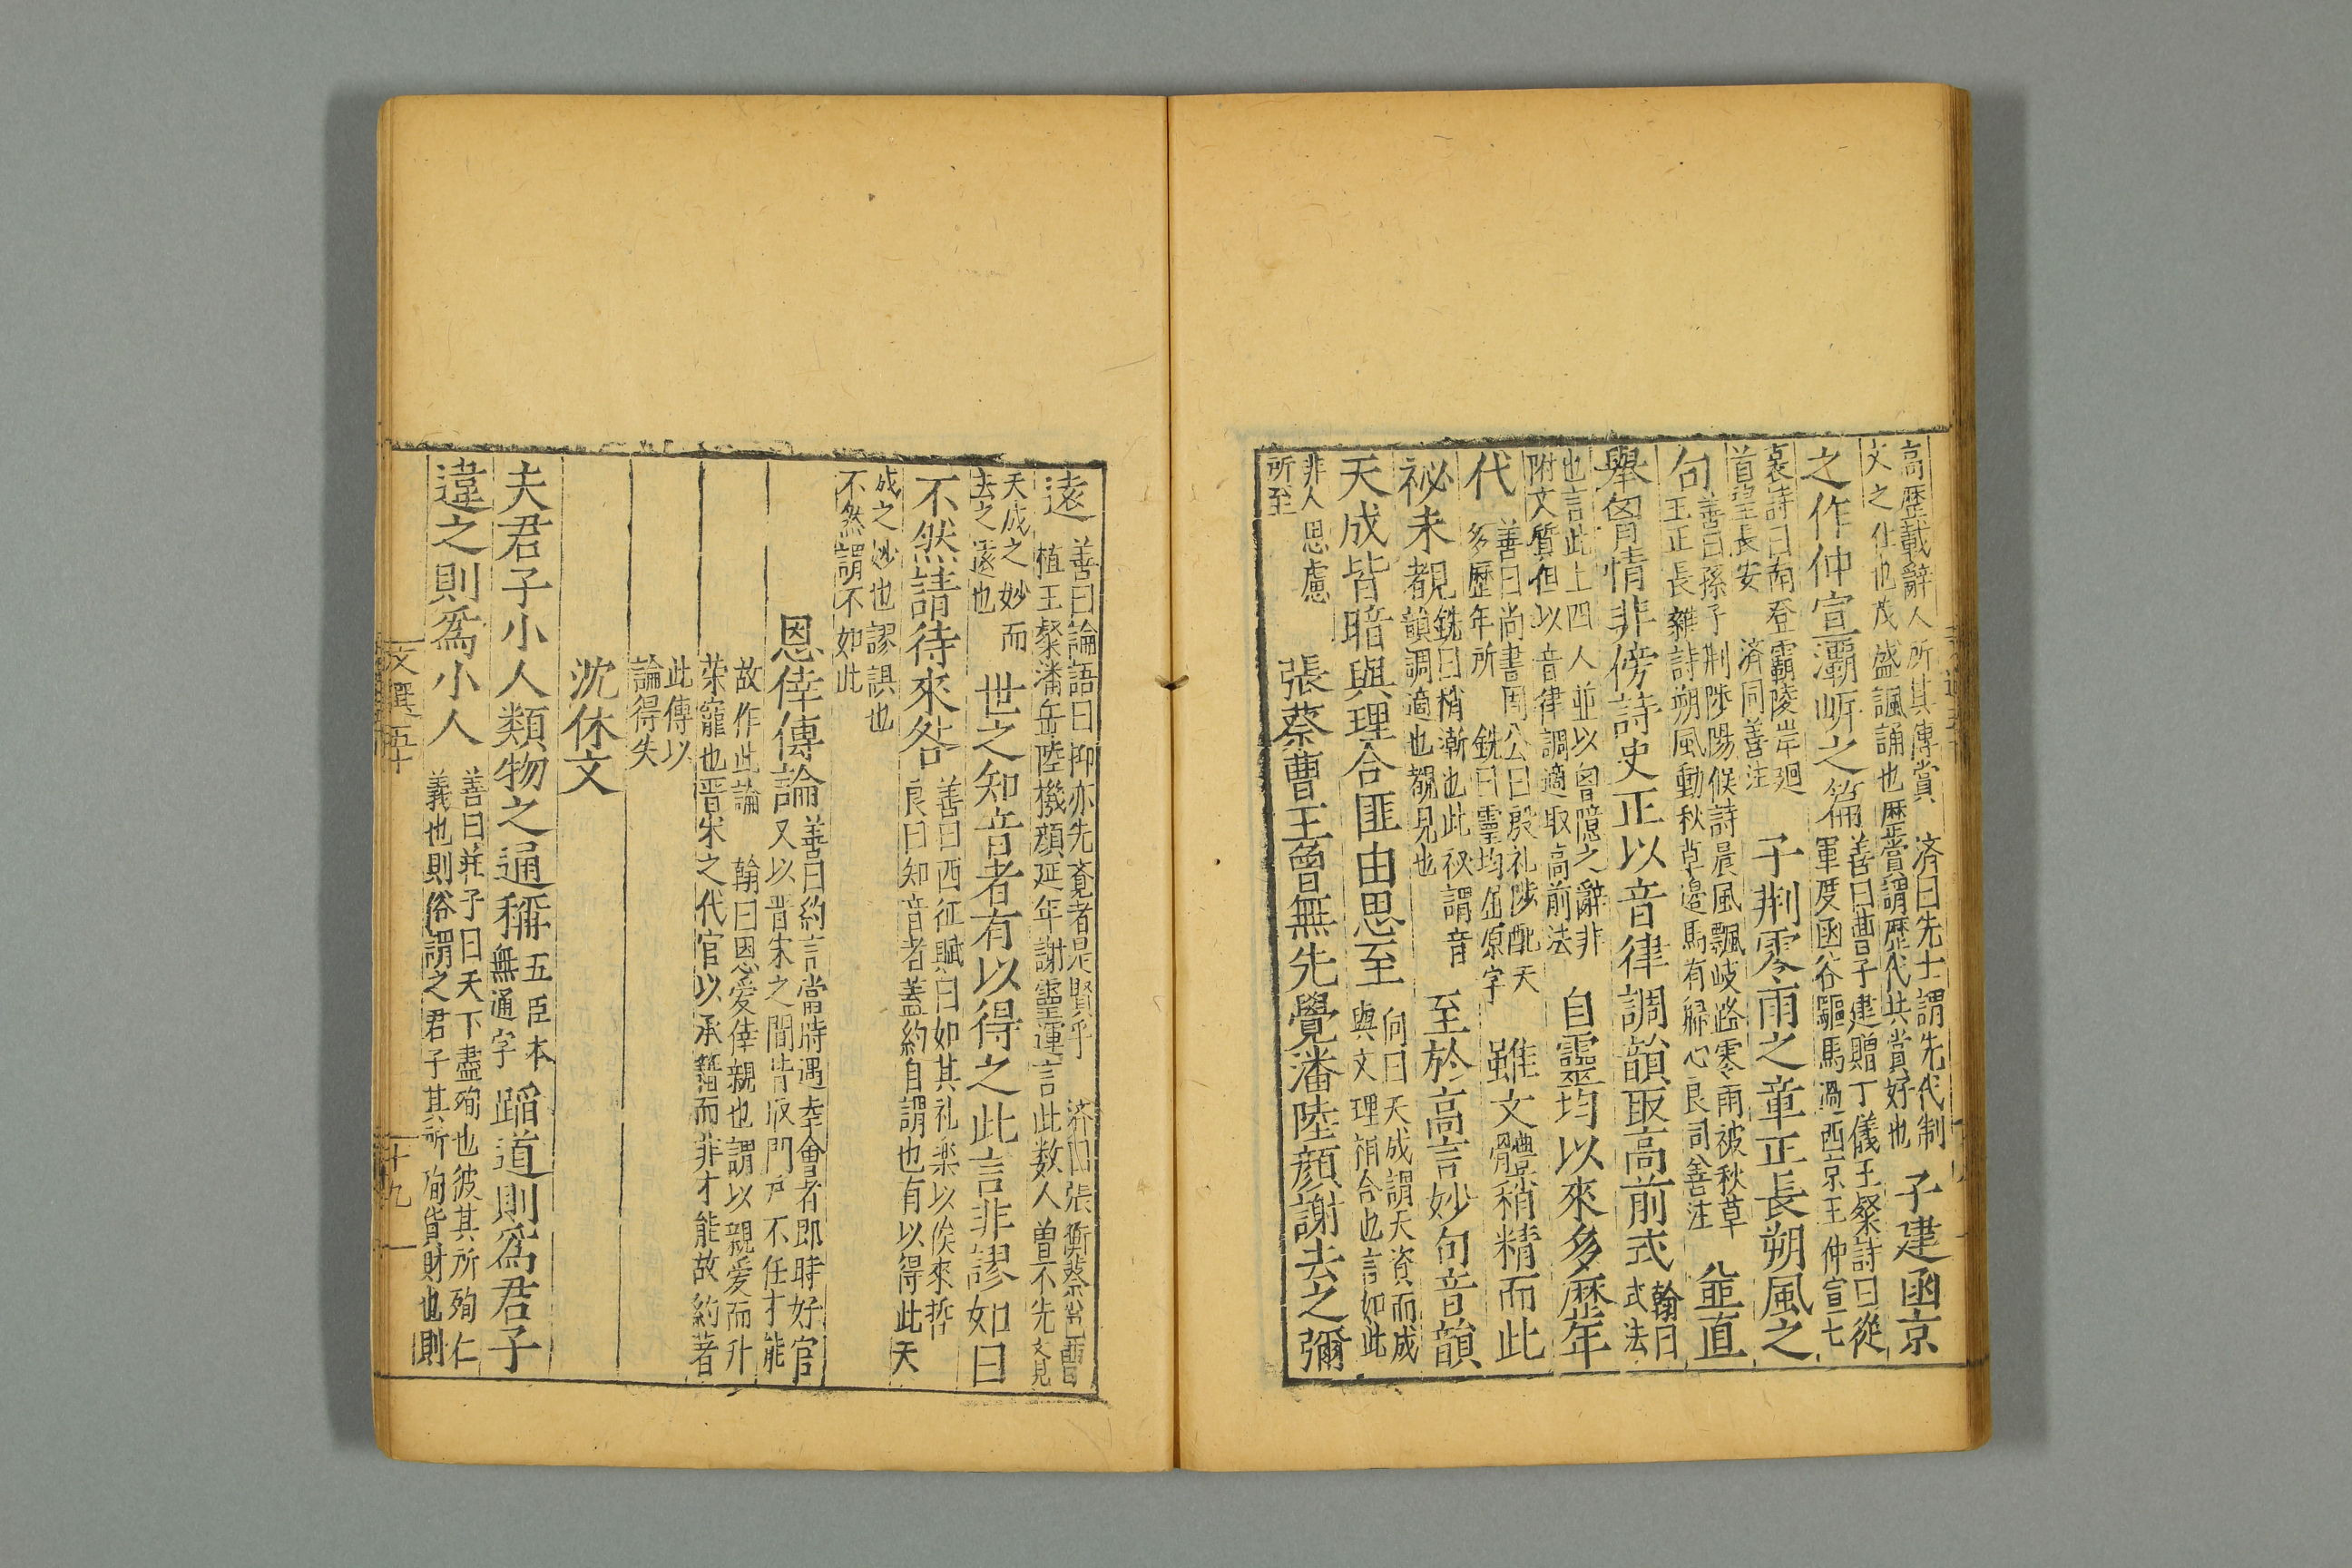 高歷載辭人所其傳賞 濟曰先士謂先代制
文之仕也茂盛諷誦也歷賞謂歷代共賞好也 子建函京
之作仲宣灞岸之篇 善曰曹子建贈丁儀王粲詩曰從
軍度函谷驅馬過西京王仲宣七
哀詩曰南登霸陵岸迴
首望長安 濟同善注 子荆零雨之章正長朔風之
句 善曰孫子荆陟陽候詩晨風飄岐路零雨被秋草
王正長雜詩朔風動秋草邊馬有歸心良同善注 並直
舉胷情非傍詩史正以音律調韻取高前式 翰曰
式法
也言此上四人並以胷臆之辭非
附文質但以音律調適取高前法 自靈均以來多歷年
代 善曰尚書周公曰殷礼陟配天
多歷年所 銑曰靈均屈原字 雖文體稍精而此
祕未覩 銑曰稍漸也此祕謂音
韻調適也覩見也 至於高言妙句音韻
天成皆暗與理合匪由思至 向曰天成謂天資而成
與文理稍合也言如此
非人思慮
所至 張蔡曹王曾無先覺潘陸顏謝去之彌
遠 善曰論語曰抑亦先覺者是賢乎 濟曰張衡蔡邕曹
植王粲潘岳陸機顏延年謝靈運言此數人曾不先文見
天成之妙而
去之遠也 世之知音者有以得之此言非謬如曰
不然請待來哲 善曰西征賦曰如其礼樂以俟來哲
良曰知音者蓋約自謂也有以得此天
成之妙也謬誤也
不然謂不如此
恩倖傳論 善曰約言當時遇幸會者即時好官
又以晉宋之間皆取門户不任才能
故作此論 翰曰恩愛倖親也謂以親愛而升
榮寵也晉宋之代官以承籍而非才能故約著
此傳以
論得失
沈休文
夫君子小人類物之通稱 五臣本
無通字 蹈道則為君子
違之則為小人 善曰莊子曰天下盡殉也彼其所殉仁
義也則俗謂之君子其所殉貨財也則
文選五十
十九